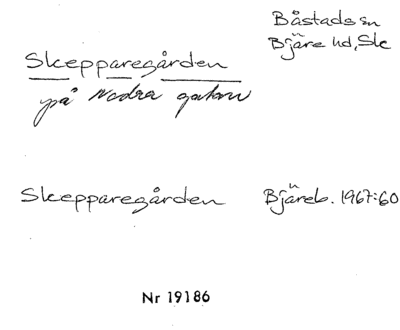 Båstads sn
Bjäre hd, Sk
Skepparegården
på Nodra gatan
Skepparegården Bjäreb. 1967:60
Nr 19186